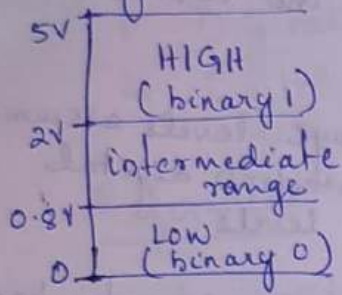 5V
HIGH
(binary 1)
2V
intermediate
range
0.8V
LOW
(binary 0)
0